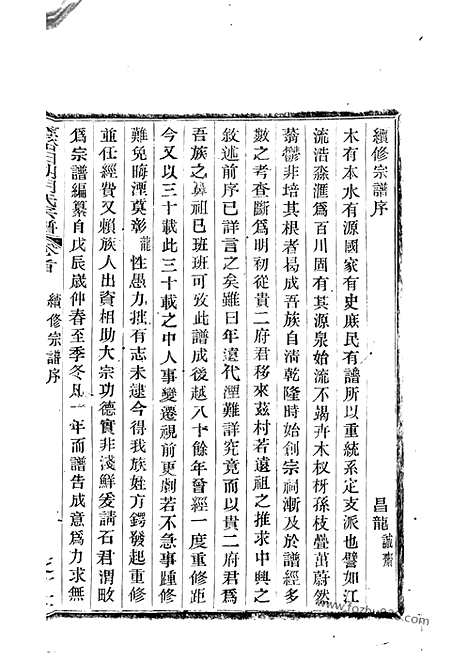 續修宗譜序
昌龍 誠齋
木有本水有源國家有史庶民有譜所以重統系定支派也譬如江
流浩淼滙爲百川固有其源泉始流不竭卉木杈枒孫枝疊茁蔚然
蓊鬱非培其根者曷成吾族自清乾隆時始創宗祠漸及於譜經多
數之考查斷爲明初從貴二府君移來茲村若遠祖之推求中興之
敘述前序已詳言之矣雖曰年遠代湮難詳究竟而以貴二府君爲
吾族之鼻祖已班班可攷此譜成後越八十餘年曾經一度重修距
今又以三十載此三十載之中人事變遷視前更劇若不急事踵修
難免晦湮莫彰龍性愚力拙有志未逮今得我族姓方鍔發起重修
並任經費又賴族人出資相助大宗功德實非淺鮮爰請石君渭畋
爲宗譜編纂自戊辰歲仲春至季冬凡一年而譜告成意爲力求無
首
續修宗譜序
www.fozhu920.com